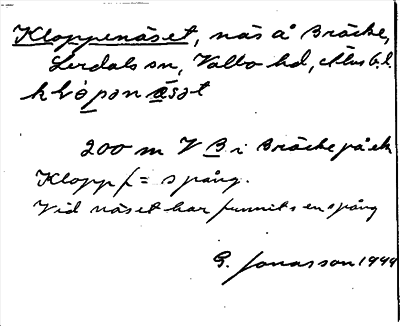 Kloppenäset, näs å Bräcke,
Lerdals sn, Valbo hd, Älvs b. l.
200 m V B. i Bräcke på ek
Klopp f = spång.
Vid näset har funnits en spång
G. Jonasson 1949